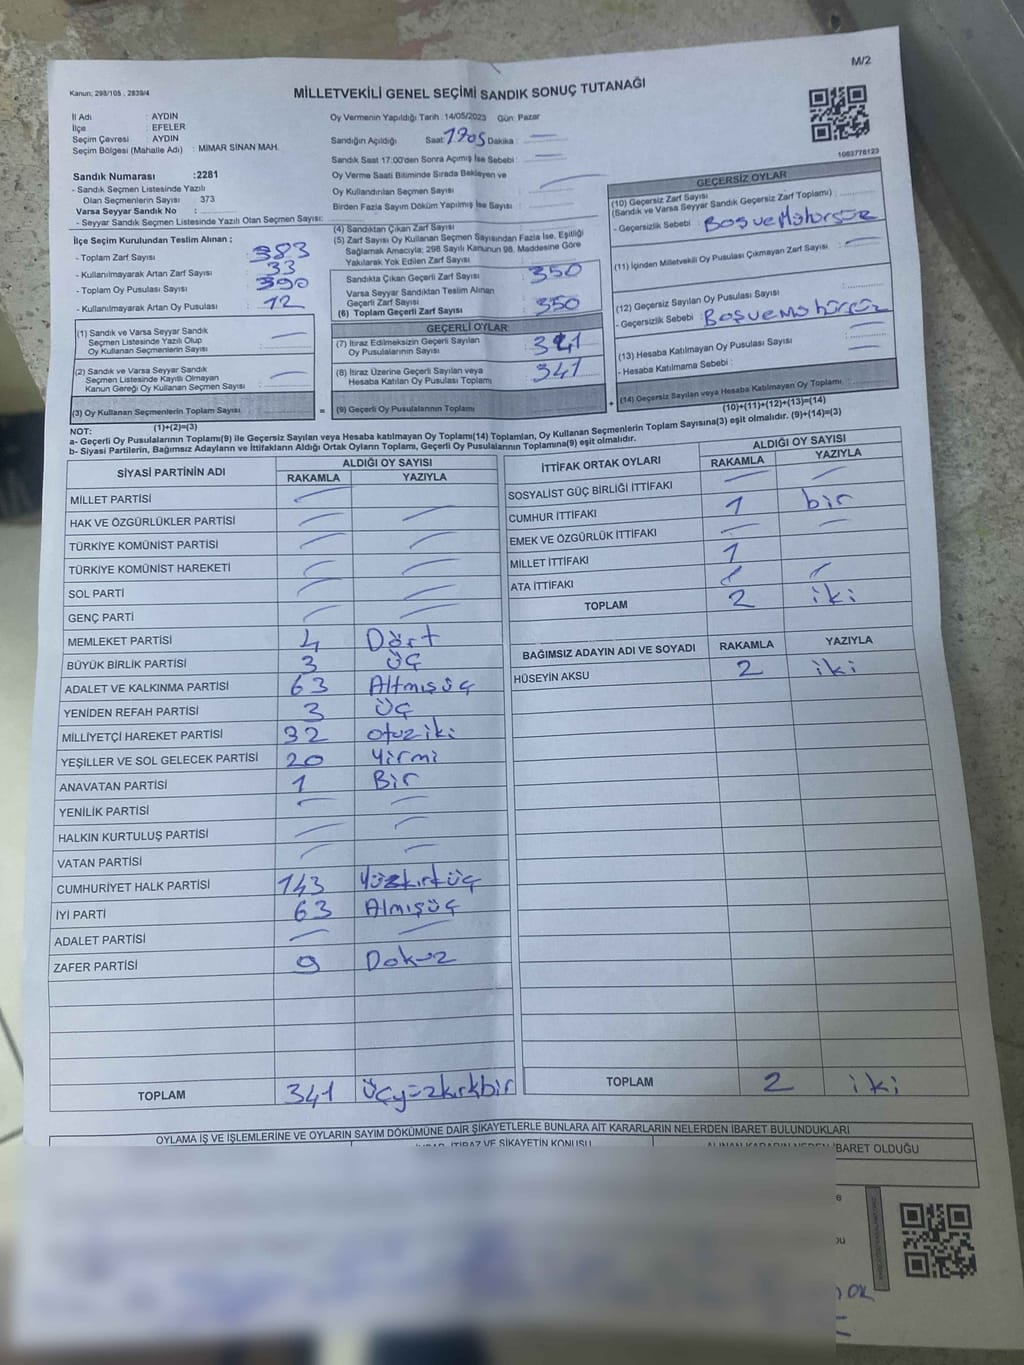 M/2
Kanun: 298/105 , 2839/4
MİLLETVEKİLİ GENEL SEÇİMİ SANDIK SONUÇ TUTANAĞI
İl Adı : AYDIN
İlçe : EFELER
Seçim Çevresi : AYDIN
Seçim Bölgesi (Mahalle Adı) : MIMAR SINAN MAH.
Sandık Numarası :2281
- Sandık Seçmen Listesinde Yazılı
Olan Seçmenlerin Sayısı 373
Varsa Seyyar Sandık No :
- Seyyar Sandık Seçmen Listesinde Yazılı Olan Seçmen Sayısı:
İlçe Seçim Kurulundan Teslim Alınan ;
- Toplam Zarf Sayısı 383
- Kullanılmayarak Artan Zarf Sayısı 33
- Toplam Oy Pusulası Sayısı 390
- Kullanılmayarak Artan Oy Pusulası 12
(1) Sandık ve Varsa Seyyar Sandık
Seçmen Listesinde Yazılı Olup
Oy Kullanan Seçmenlerin Sayısı
(2) Sandık ve Varsa Seyyar Sandık
Seçmen Listesinde Kayıtlı Olmayan
Kanun Gereği Oy Kullanan Seçmen Sayısı
(3) Oy Kullanan Seçmenlerin Toplam Sayısı
(1)+(2)=(3)
Oy Vermenin Yapıldığı Tarih :14/05/2023 Gün: Pazar
Sandığın Açıldığı Saat: 1705 Dakika :
Sandık Saat 17:00'den Sonra Açılmış İse Sebebi :
Oy Verme Saati Bitiminde Sırada Bekleyen ve
Oy Kullandırılan Seçmen Sayısı
Birden Fazla Sayım Döküm Yapılmış İse Sayısı :
(4) Sandıktan Çıkan Zarf Sayısı
(5) Zarf Sayısı Oy Kullanan Seçmen Sayısından Fazla İse, Eşitliği
Sağlamak Amacıyla; 298 Sayılı Kanunun 98. Maddesine Göre
Yakılarak Yok Edilen Zarf Sayısı
Sandıkta Çıkan Geçerli Zarf Sayısı 350
Varsa Seyyar Sandıktan Teslim Alınan
Geçerli Zarf Sayısı
(6) Toplam Geçerli Zarf Sayısı 350
GEÇERLİ OYLAR
(7) İtiraz Edilmeksizin Geçerli Sayılan
Oy Pusulalarının Sayısı 341
(8) İtiraz Üzerine Geçerli Sayılan veya
Hesaba Katılan Oy Pusulası Toplamı 341
= (9) Geçerli Oy Pusulalarının Toplamı +
1063778123
GEÇERSİZ OYLAR
(10) Geçersiz Zarf Sayısı
(Sandık ve Varsa Seyyar Sandık Geçersiz Zarf Toplamı) :
- Geçersizlik Sebebi : Boş ve Mühürsüz
(11) İçinden Milletvekili Oy Pusulası Çıkmayan Zarf Sayısı
(12) Geçersiz Sayılan Oy Pusulası Sayısı
- Geçersizlik Sebebi : Boş ve Mühürsüz
(13) Hesaba Katılmayan Oy Pusulası Sayısı
- Hesaba Katılmama Sebebi :
(14) Geçersiz Sayılan veya Hesaba Katılmayan Oy Toplamı
(10)+(11)+(12)+(13)=(14)
NOT:
a- Geçerli Oy Pusulalarının Toplamı(9) ile Geçersiz Sayılan veya Hesaba katılmayan Oy Toplamı(14) Toplamları, Oy Kullanan Seçmenlerin Toplam Sayısına(3) eşit olmalıdır. (9)+(14)=(3)
b- Siyasi Partilerin, Bağımsız Adayların ve İttifakların Aldığı Ortak Oyların Toplamı, Geçerli Oy Pusulalarının Toplamına(9) eşit olmalıdır.
SİYASİ PARTİNİN ADI ALDIĞI OY SAYISI
RAKAMLA YAZIYLA
MİLLET PARTİSİ
HAK VE ÖZGÜRLÜKLER PARTİSİ
TÜRKİYE KOMÜNİST PARTİSİ
TÜRKİYE KOMÜNİST HAREKETİ
SOL PARTİ
GENÇ PARTİ
MEMLEKET PARTİSİ 4 Dört
BÜYÜK BİRLİK PARTİSİ 3 üç
ADALET VE KALKINMA PARTİSİ 63 Altmışüç
YENİDEN REFAH PARTİSİ 3 üç
MİLLİYETÇİ HAREKET PARTİSİ 32 otuziki
YEŞİLLER VE SOL GELECEK PARTİSİ 20 Yirmi
ANAVATAN PARTİSİ 1 Bir
YENİLİK PARTİSİ
HALKIN KURTULUŞ PARTİSİ
VATAN PARTİSİ
CUMHURİYET HALK PARTİSİ 143 Yüzkırküç
İYİ PARTİ 63 Almışüç
ADALET PARTİSİ
ZAFER PARTİSİ 9 Dokuz
TOPLAM 341 Üçyüzkırkbir
İTTİFAK ORTAK OYLARI ALDIĞI OY SAYISI
RAKAMLA YAZIYLA
SOSYALİST GÜÇ BİRLİĞİ İTTİFAKI
CUMHUR İTTİFAKI 1 bir
EMEK VE ÖZGÜRLÜK İTTİFAKI
MİLLET İTTİFAKI 1
ATA İTTİFAKI
TOPLAM 2 iki
BAĞIMSIZ ADAYIN ADI VE SOYADI RAKAMLA YAZIYLA
HÜSEYİN AKSU 2 iki
TOPLAM 2 iki
OYLAMA İŞ VE İŞLEMLERİNE VE OYLARIN SAYIM DÖKÜMÜNE DAİR ŞİKAYETLERLE BUNLARA AİT KARARLARIN NELERDEN İBARET BULUNDUKLARI
İTİRAZ VE ŞİKAYETİN KONUSU
ALINAN KARARIN NEDEN İBARET OLDUĞU